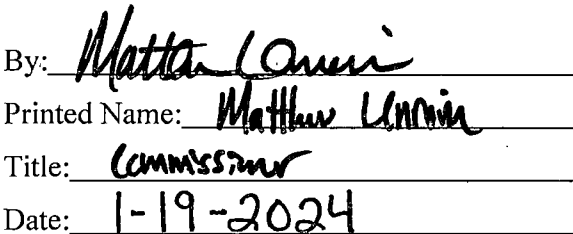 By: Matthew
Printed Name: Matthew Unruh
Title: Commissioner
Date: 1-19-2024